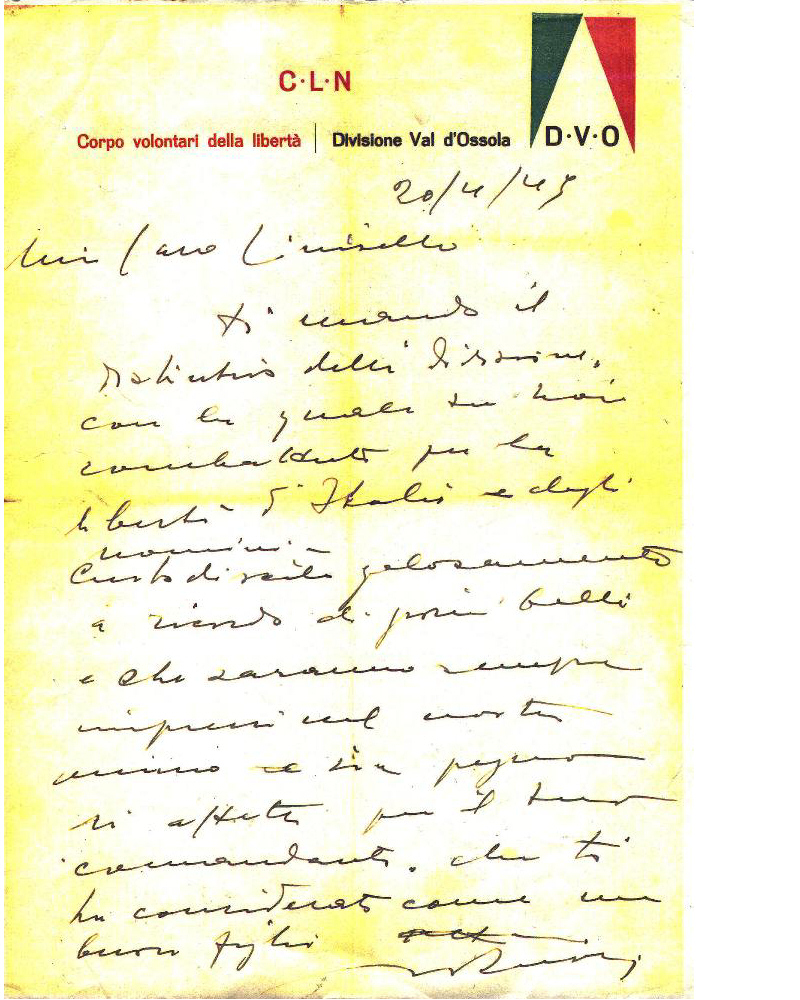 C·L·N
Corpo volontari della libertà | Divisione Val d'Ossola
D·V·O
20/4/45
Mio Caro
ti mando il
distintivo della Divisione,
con la quale tu hai
combattuto per la
libertà d'Italia e degli
uomini.
Custodiscilo gelosamente
a ricordo di giorni belli
e che saranno sempre
impressi nel nostro
animo e sia pegno
di affetto per il tuo
comandante, che ti
ha considerato come un
buon figlio